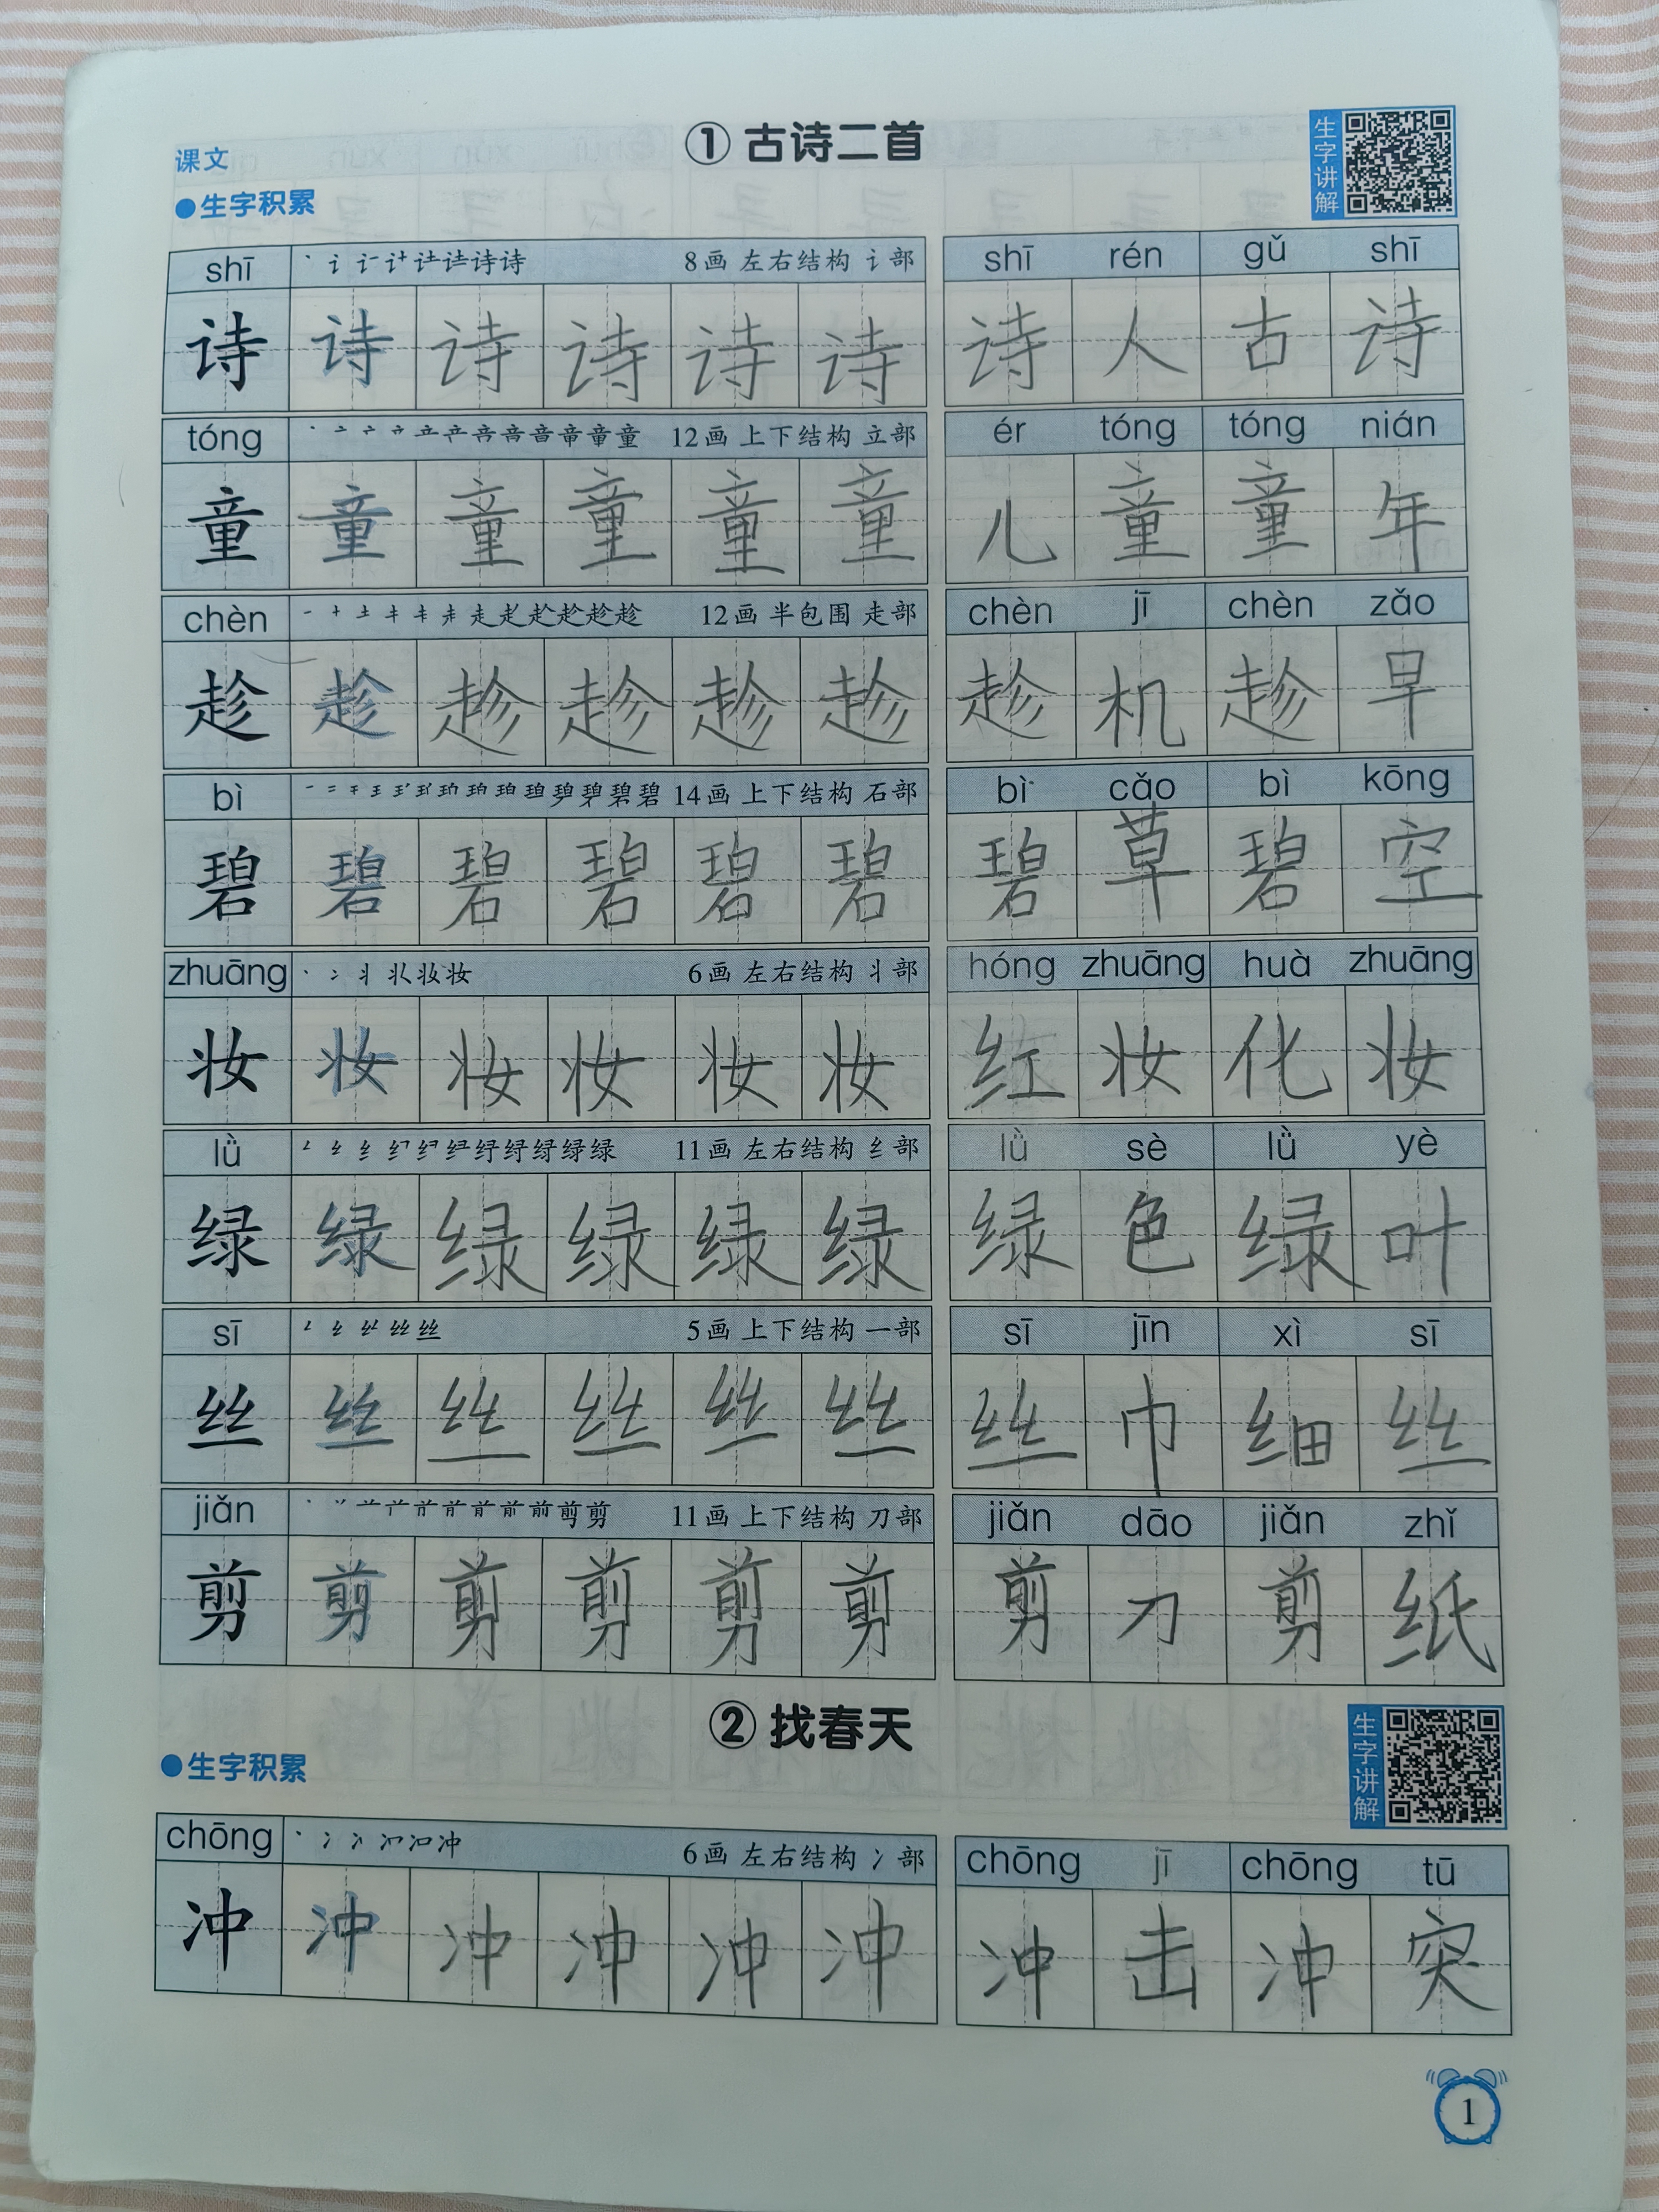 课文
① 古诗二首
生字讲解
●生字积累
shī 8画 左右结构 讠部 shī rén gǔ shī
诗 诗 诗 诗 诗 诗 诗 人 古 诗
tóng 12画 上下结构 立部 ér tóng tóng nián
童 童 童 童 童 童 儿 童 童 年
chèn 12画 半包围 走部 chèn jī chèn zǎo
趁 趁 趁 趁 趁 趁 趁 机 趁 早
bì 14画 上下结构 石部 bì cǎo bì kōng
碧 碧 碧 碧 碧 碧 碧 草 碧 空
zhuāng 6画 左右结构 丬部 hóng zhuāng huà zhuāng
妆 妆 妆 妆 妆 妆 红 妆 化 妆
lǜ 11画 左右结构 纟部 lǜ sè lǜ yè
绿 绿 绿 绿 绿 绿 绿 色 绿 叶
sī 5画 上下结构 一部 sī jīn xì sī
丝 丝 丝 丝 丝 丝 丝 巾 细 丝
jiǎn 11画 上下结构 刀部 jiǎn dāo jiǎn zhǐ
剪 剪 剪 剪 剪 剪 剪 刀 剪 纸
② 找春天
生字讲解
●生字积累
chōng 6画 左右结构 冫部 chōng jī chōng tū
冲 冲 冲 冲 冲 冲 冲 击 冲 突
1